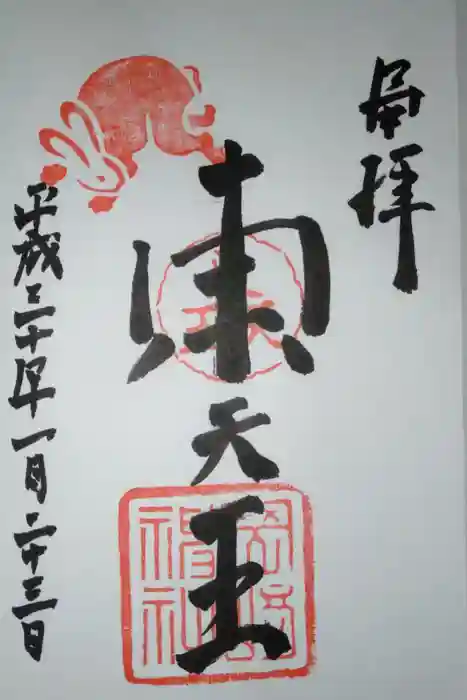 奉拝
東天王
岡崎神社
平成三十年一月二十三日